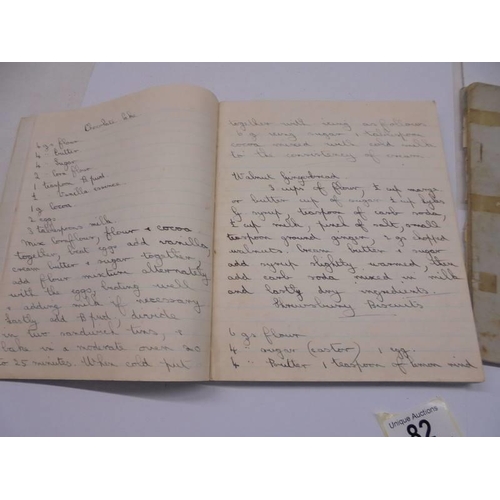 6 g. flour
4 " butter
4 " Sugar
2 " Corn flour
1 teaspoon B. pwd
½ " Vanilla essence
1 g. Cocoa
2 eggs
3 tablespoons milk
Mix cornflour, flour & cocoa
together, beat eggs add vanilla,
cream butter & sugar together,
add flour mixture alternately
with the eggs, beating well
& adding milk if necessary.
Lastly add B. pwd, divide
in two sandwich tins, &
bake in a moderate oven 20
to 25 minutes. When cold put
together with icing as follows
6 g. icing sugar & 1 tablespoon
cocoa mixed with cold milk
to the consistency of cream
Walnut Gingerbread
3 cups of flour, ½ cup marge
or butter cup of sugar & ½ cup
syrup, teaspoon of carb soda,
½ cup milk, pinch of salt, small
teaspoon ground ginger, 2 g. chopped
walnuts. Cream butter & sugar
add syrup slightly warmed, then
add carb soda mixed in milk
and lastly dry ingredients
Shrewsbury Biscuits
6 g. flour
4 " sugar (castor) 1 egg.
4 " Butter 1 teaspoon of lemon rind
Unique Auctions
82